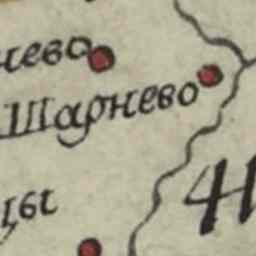 нево
Шарнево
цы
Н